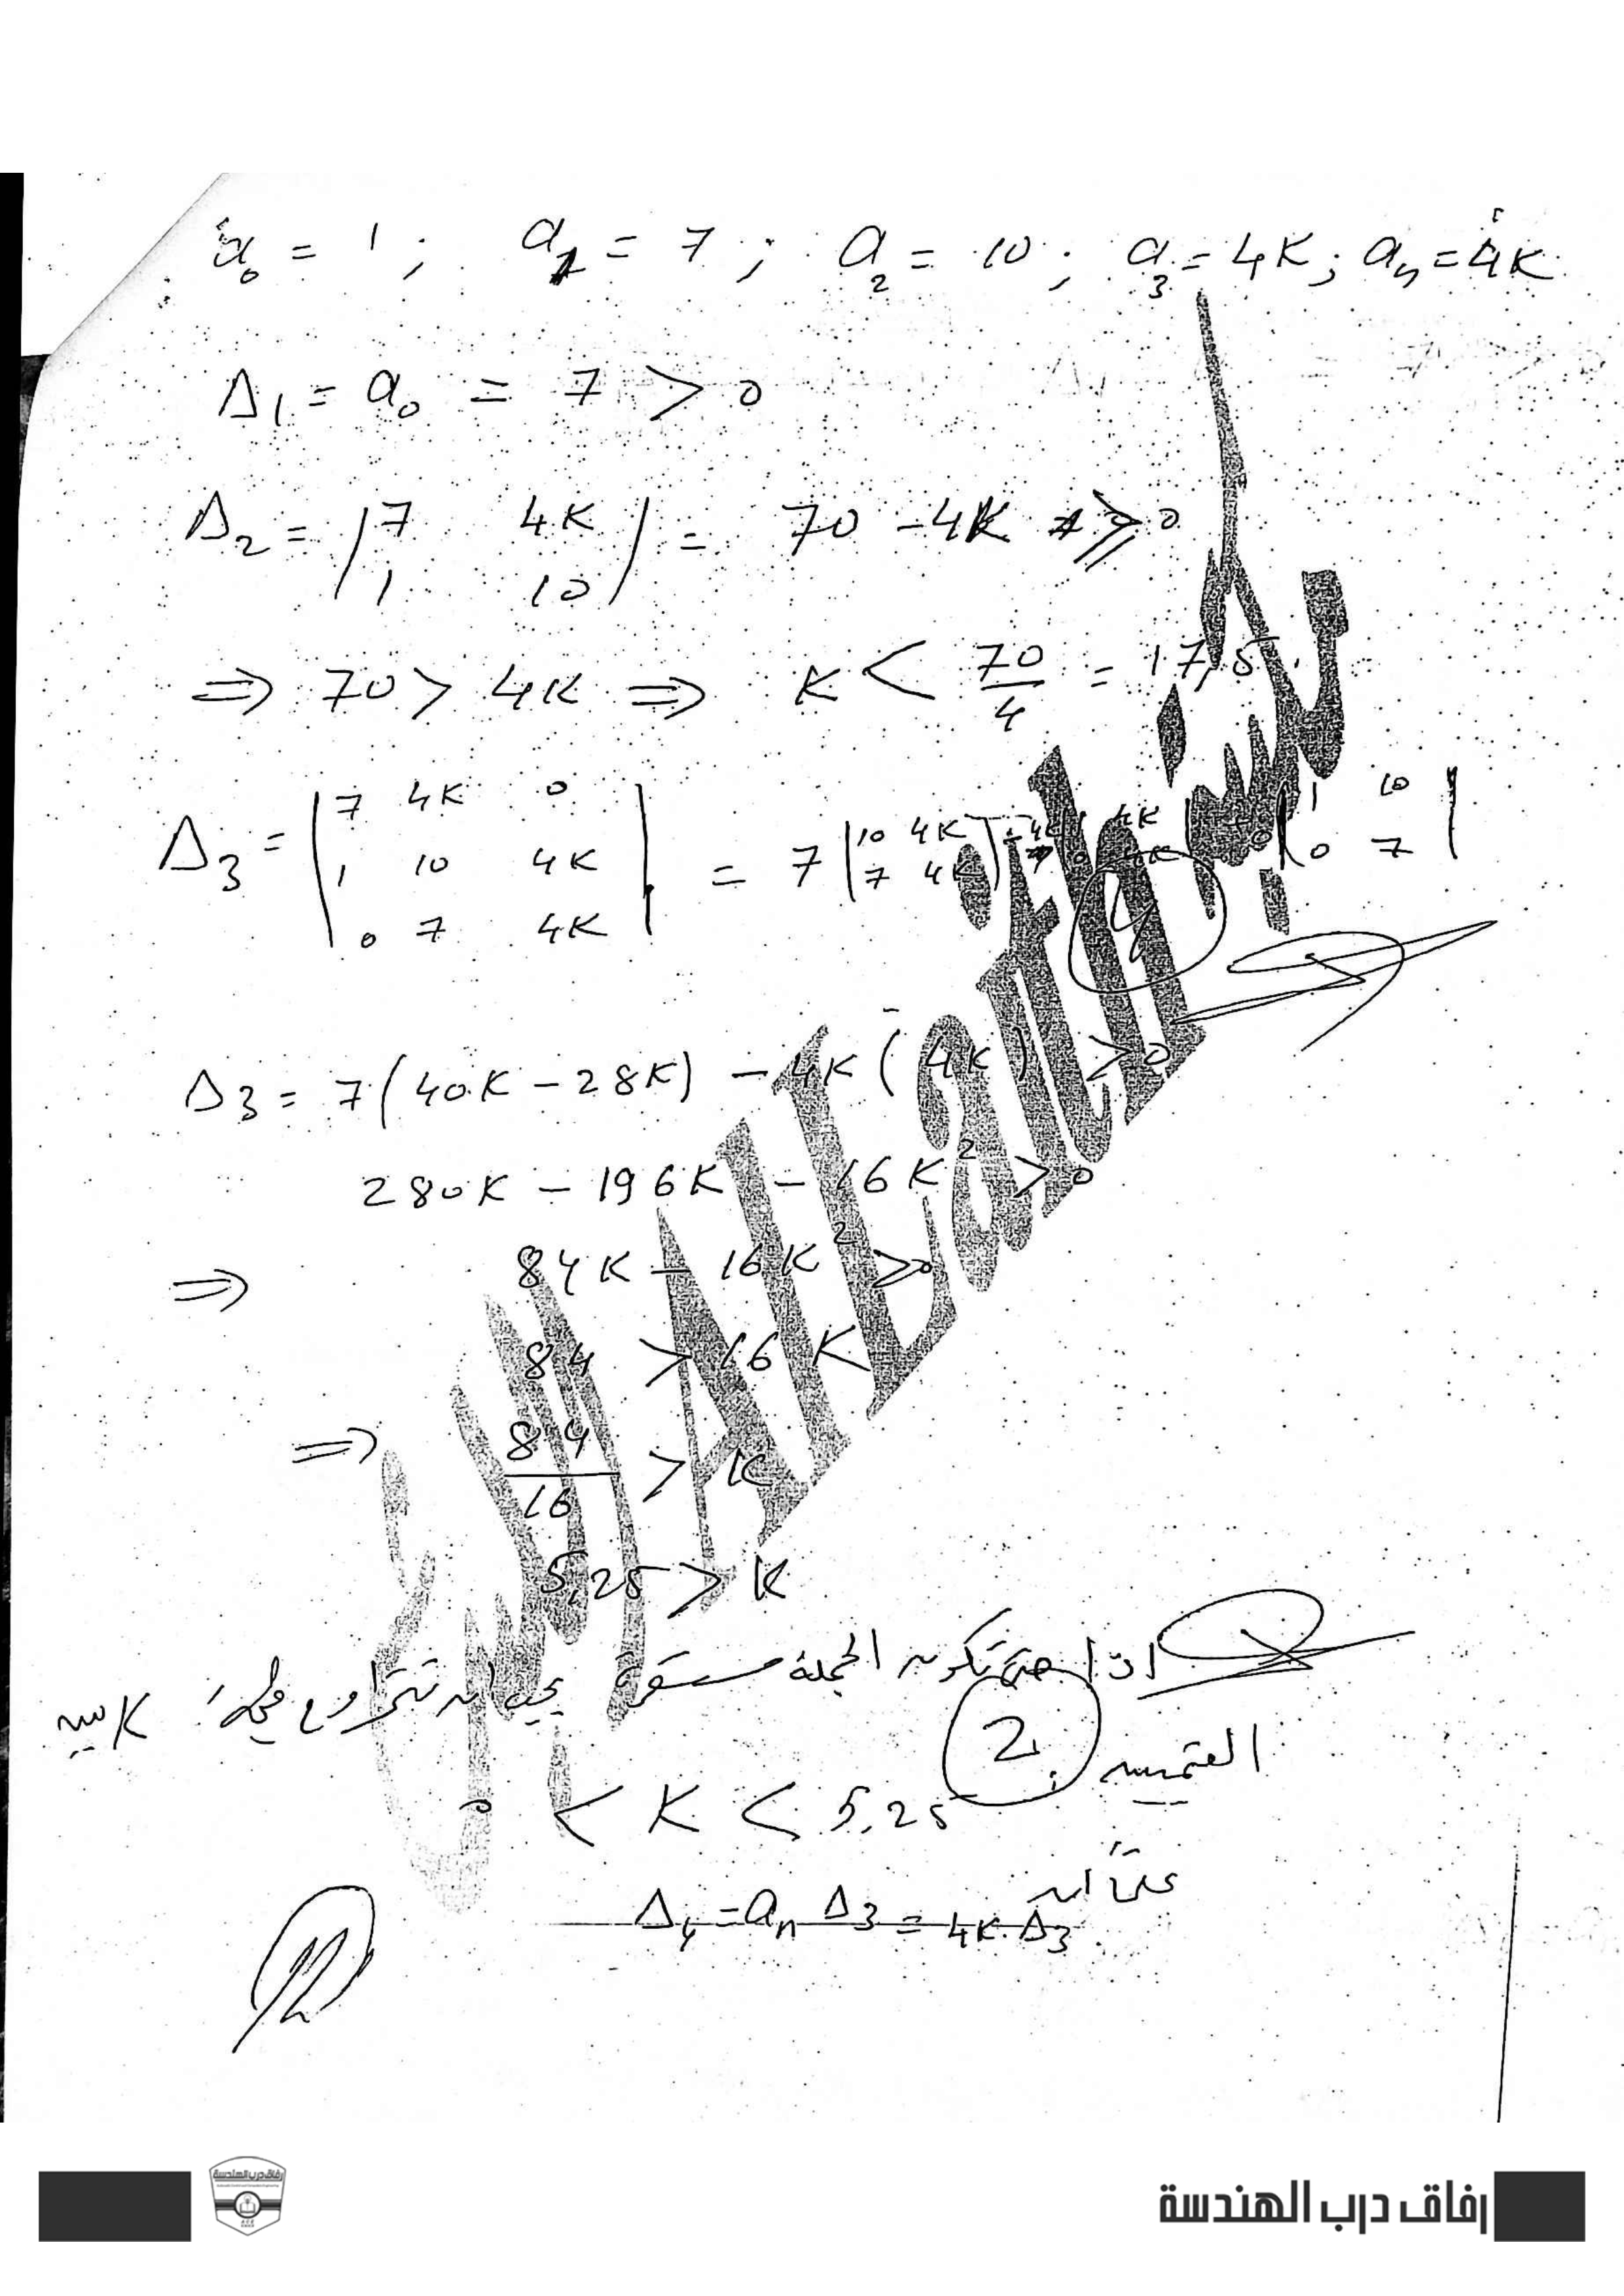 a₀ = 1 ; a₁ = 7 ; a₂ = 10 ; a₃ = 4K ; aₙ = 4K
Δ₁ = a₀ = 7 > 0
Δ₂ = | 7 4K | = 70 - 4K > 0
| 1 10 |
⇒ 70 > 4K ⇒ K < 70/4 = 17,5
Δ₃ = | 7 4K 0 | = 7 | 10 4K | - 4K | 1 4K | + 0 | 1 10 |
| 1 10 4K | | 7 4K | | 0 4K | | 0 7 |
| 0 7 4K |
4
Δ₃ = 7(40K - 28K) - 4K(4K) > 0
280K - 196K - 16K² > 0
⇒ 84K - 16K² > 0
84 > 16K
⇒ 84/16 > K
5,25 > K
اذا حتى تكون الجملة مستقرة يجب ان تتراوح قيمة K بين
القيمتين
2
0 < K < 5,25
علماً ان
Δ₄ = aₙ Δ₃ = 4K·Δ₃
AlLaith
رفاق درب الهندسة